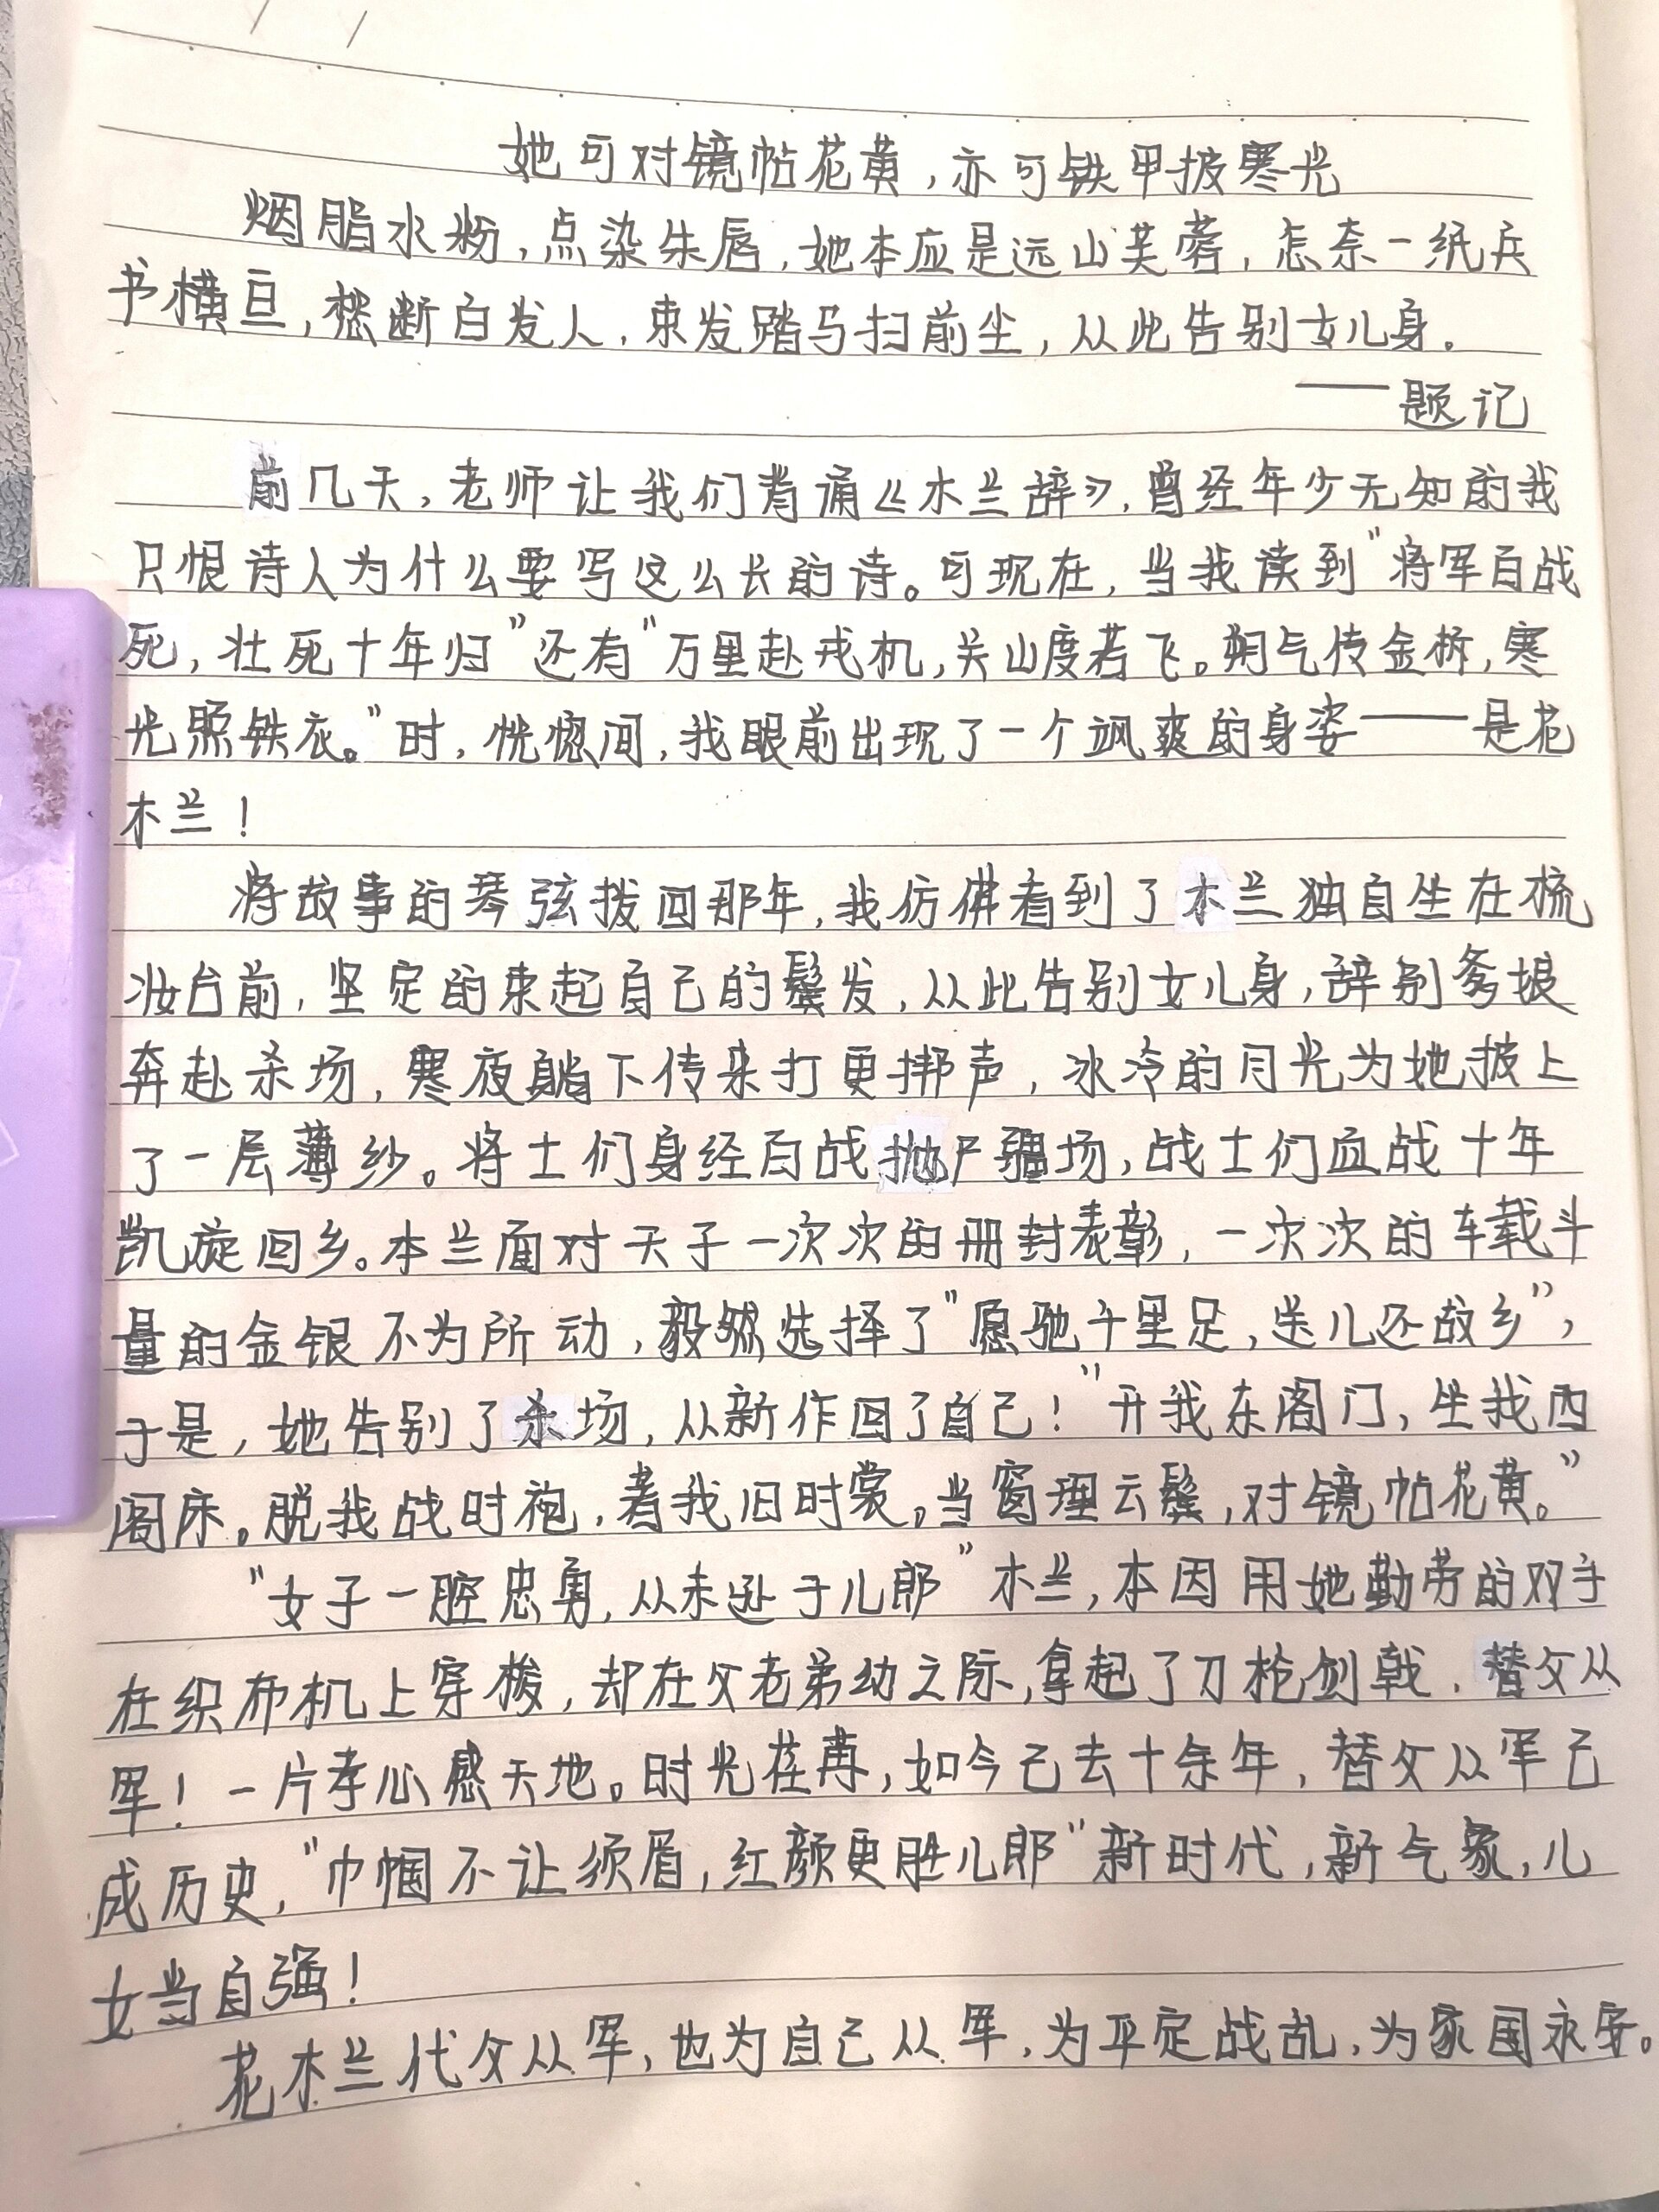 她可对镜帖花黄,亦可铁甲披寒光
烟脂水粉,点染朱唇,她本应是远山芙蓉,怎奈一纸兵
书横亘,愁断白发人,束发踏马扫前尘,从此告别女儿身。
——题记
前几天,老师让我们背诵《木兰辞》,曾经年少无知的我
只恨诗人为什么要写这么长的诗。可现在,当我读到"将军百战
死,壮死十年归"还有"万里赴戎机,关山度若飞。朔气传金柝,寒
光照铁衣。"时,恍惚间,我眼前出现了一个飒爽的身姿——是花
木兰!
将故事的琴弦拨回那年,我仿佛看到了木兰独自坐在梳
妆台前,坚定的束起自己的鬓发,从此告别女儿身,辞别爹娘
奔赴杀场,寒夜躺下传来打更梆声,冰冷的月光为她披上
了一层薄纱。将士们身经百战抛尸疆场,战士们血战十年
凯旋回乡。木兰面对天子一次次的册封表彰,一次次的车载斗
量的金银不为所动,毅然选择了"愿驰千里足,送儿还故乡",
于是,她告别了杀场,从新作回了自己!"开我东阁门,坐我西
阁床。脱我战时袍,著我旧时裳。当窗理云鬓,对镜帖花黄。"
"女子一腔忠勇,从未逊于儿郎"木兰,本因用她勤劳的双手
在织布机上穿梭,却在父老弟幼之际,拿起了刀枪剑戟,替父从
军!一片孝心感天地。时光荏苒,如今已去十余年,替父从军已
成历史,"巾帼不让须眉,红颜更胜儿郎"新时代,新气象,儿
女当自强!
花木兰代父从军,也为自己从军,为平定战乱,为家国永安。